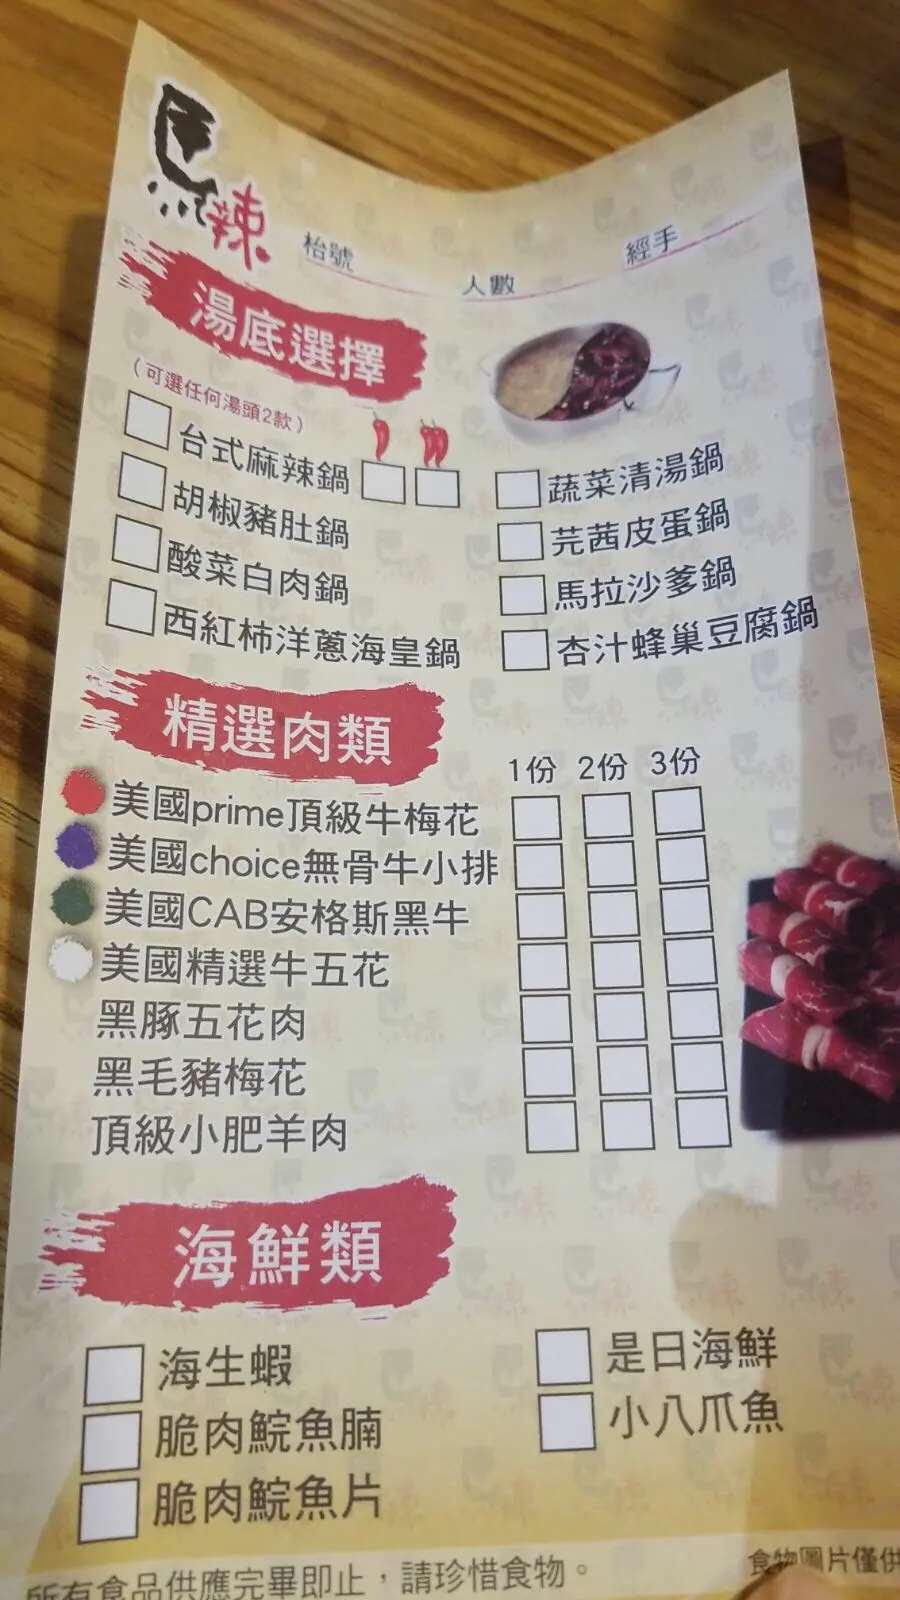 馬辣
枱號
人數
經手
湯底選擇
(可選任何湯頭2款)
台式麻辣鍋
胡椒豬肚鍋
酸菜白肉鍋
西紅柿洋蔥海皇鍋
蔬菜清湯鍋
芫茜皮蛋鍋
馬拉沙爹鍋
杏汁蜂巢豆腐鍋
精選肉類
1份 2份 3份
美國prime頂級牛梅花
美國choice無骨牛小排
美國CAB安格斯黑牛
美國精選牛五花
黑豚五花肉
黑毛豬梅花
頂級小肥羊肉
海鮮類
海生蝦
脆肉鯇魚腩
脆肉鯇魚片
是日海鮮
小八爪魚
所有食品供應完畢即止，請珍惜食物。
食物圖片僅供